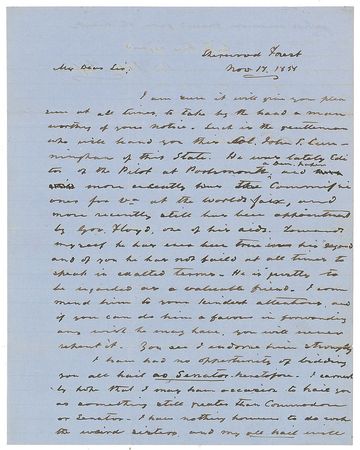 Sherwood Forest
Nov 17. 185
My Dear Sir,
I am sure it will give you plea
sure at all times, to take by the hand a man
worthy of your notice. Such is the gentleman
who will hand you this Col. John S. Cun
ningham of this State. He was lately Edi
tor of the Pilot at Portsmouth, and
more recently was the Commissi
oner for Va at the worlds fair, and
more recently still has been appointed
by Gov. Floyd, one of his aids. Towards
myself he has ever been true
and of you he has not failed at all times to
speak in exalted terms. He is justly to
be regarded as a valuable friend. I com
mend him to your kindest attentions, and
if you can do him a favor in forwarding
any wish he may have, you will never
repent it. You see I endorse him strongly
I have had no opportunity of bidding
you all hail as Senator heretofore. I earnest
ly hope that I may have occasion to hail you
as something still greater than Commodore
or Senator. I have nothing however to do with
the weird sisters, and my all hail will